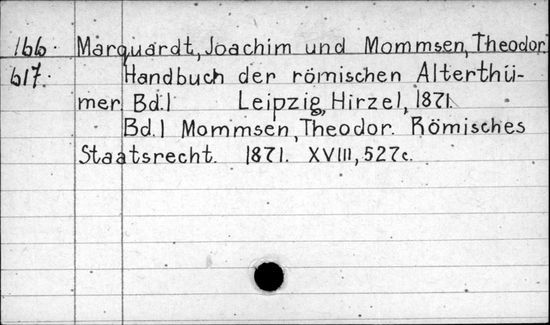 166. Marquardt, Joachim und Mommsen, Theodor.
617. Handbuch der römischen Alterthü-
mer. Bd.1 Leipzig, Hirzel, 1871.
Bd.1 Mommsen, Theodor. Römisches
Staatsrecht. 1871. XVIII, 527c.